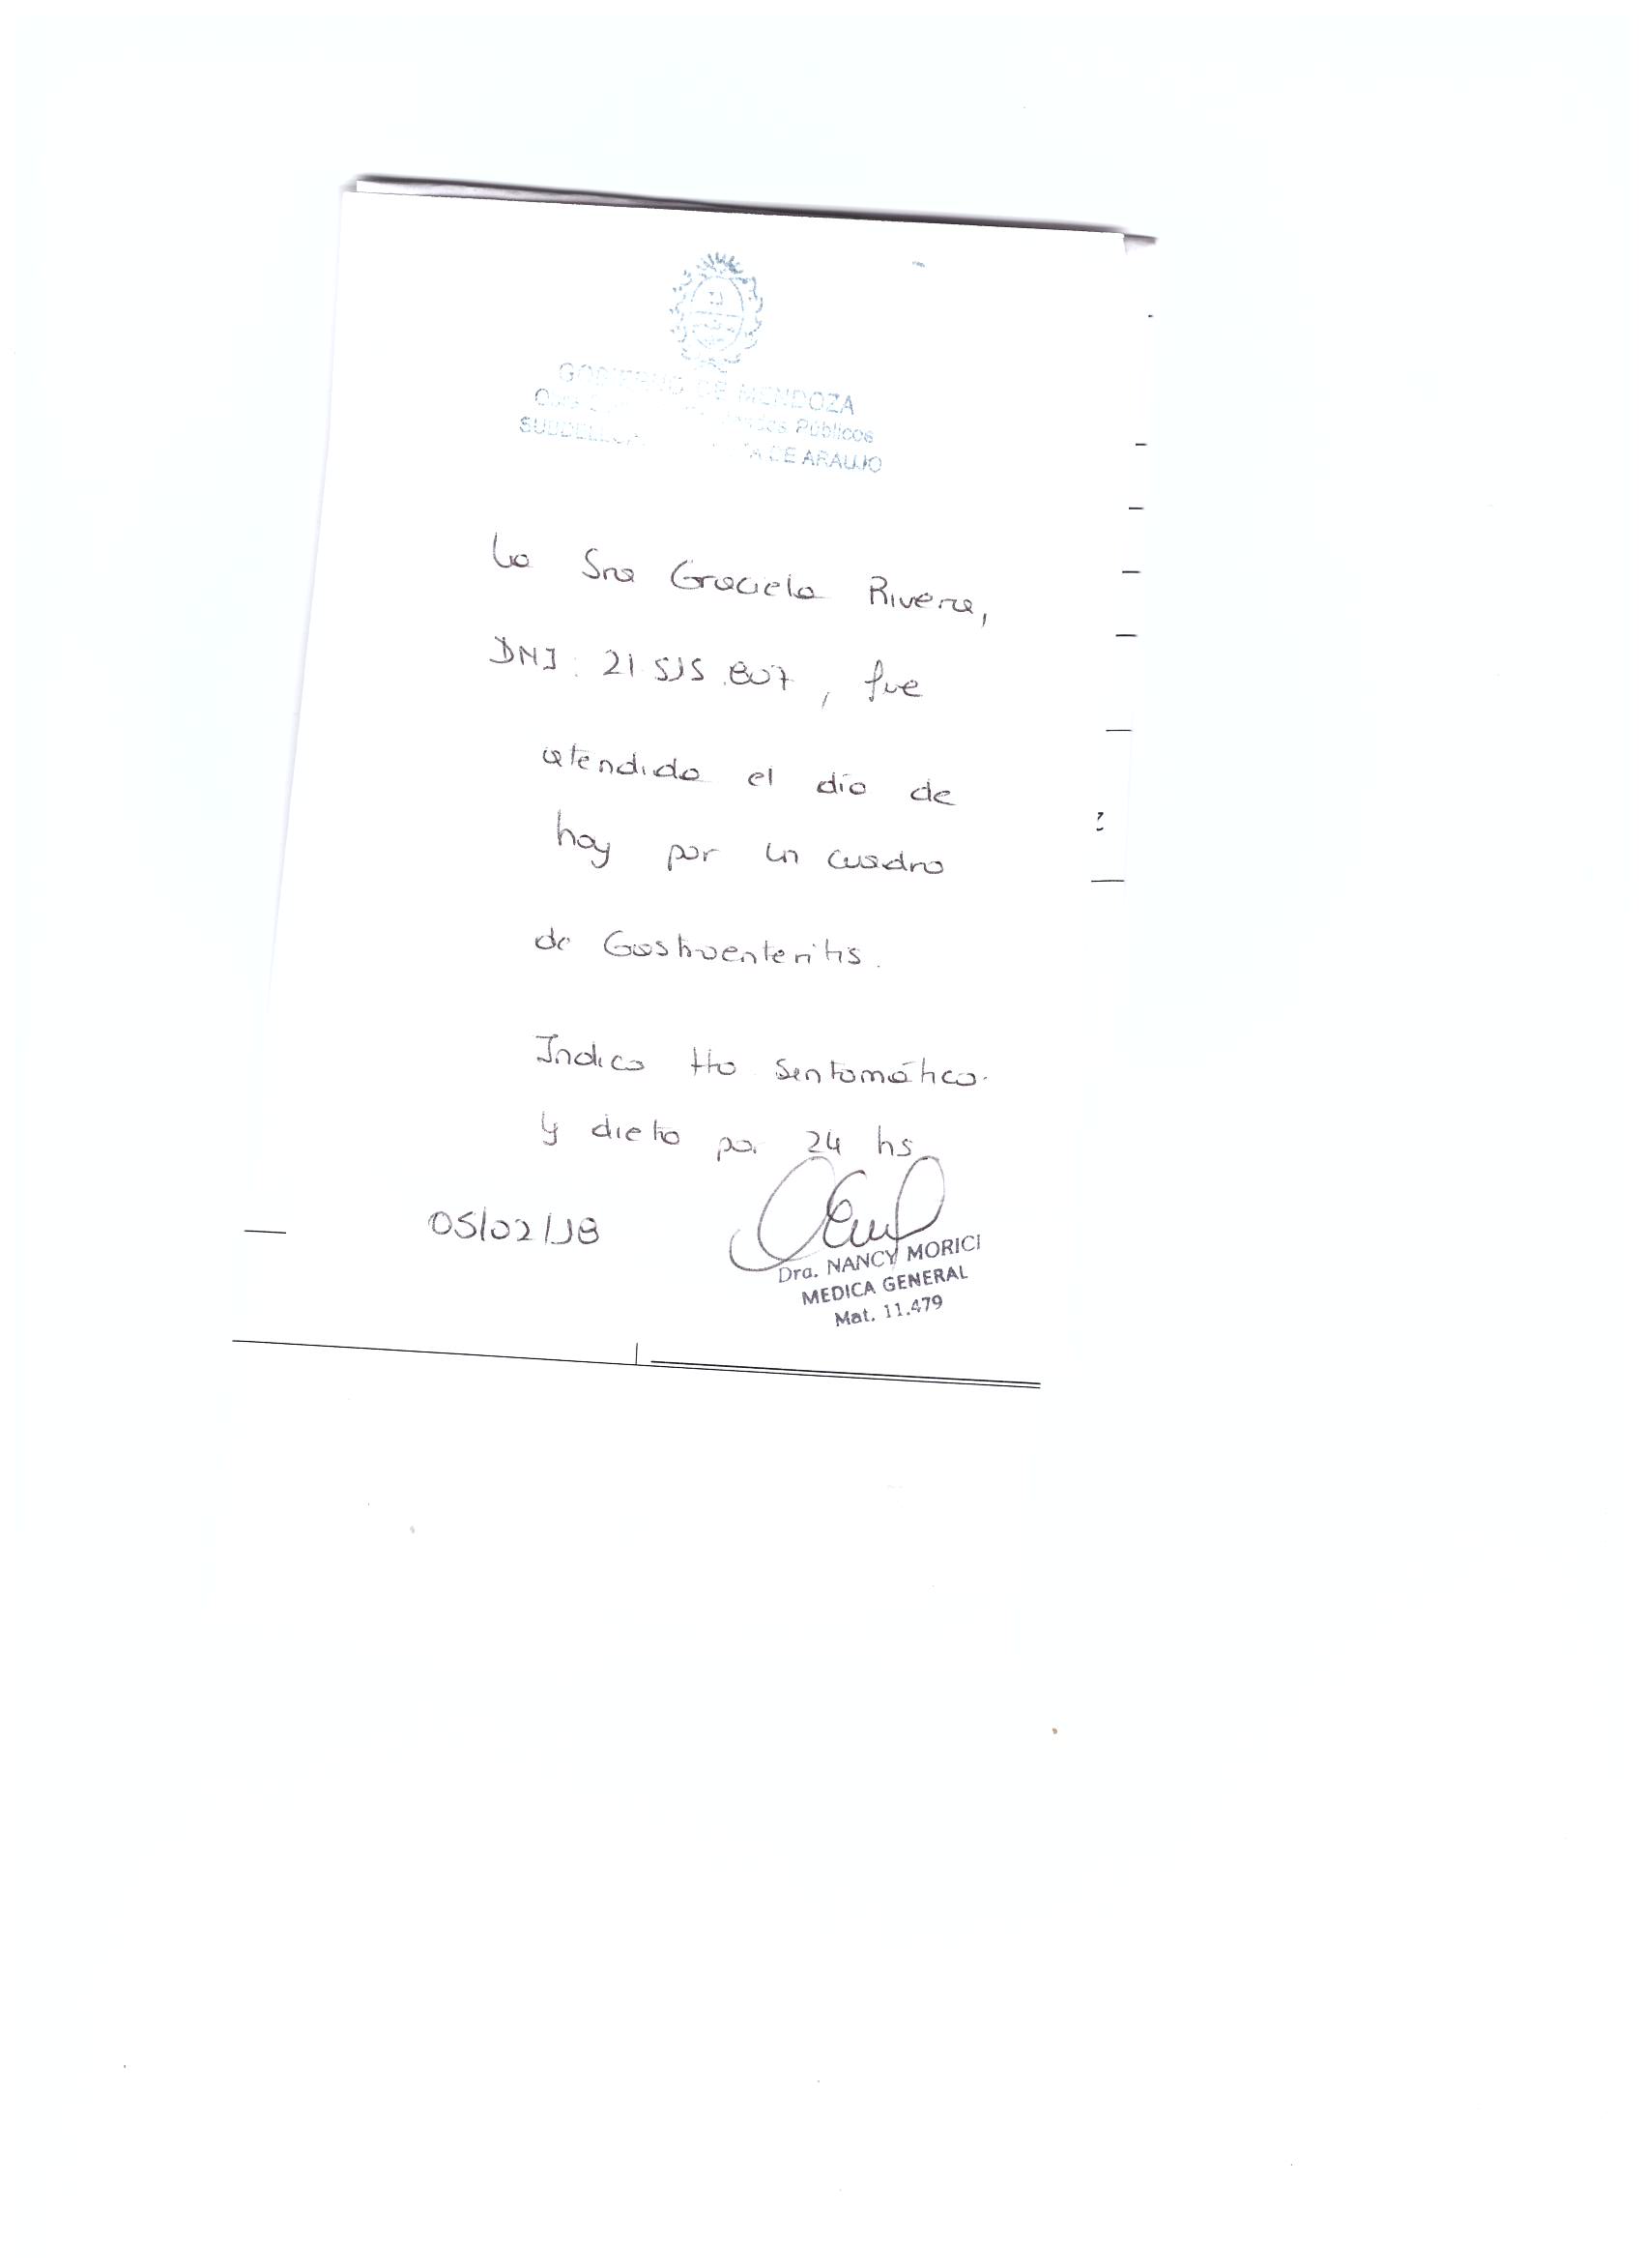 GOBIERNO DE MENDOZA
Públicos
DE ARAUJO
La Sra Graciela Rivera,
DNI: 21 515.807, fue
atendida el día de
hoy por un cuadro
de Gastroenteritis.
Indico tto sentomático.
y dieta por 24 hs
05/02/18
Dra. NANCY MORICI
MEDICA GENERAL
Mat. 11.479